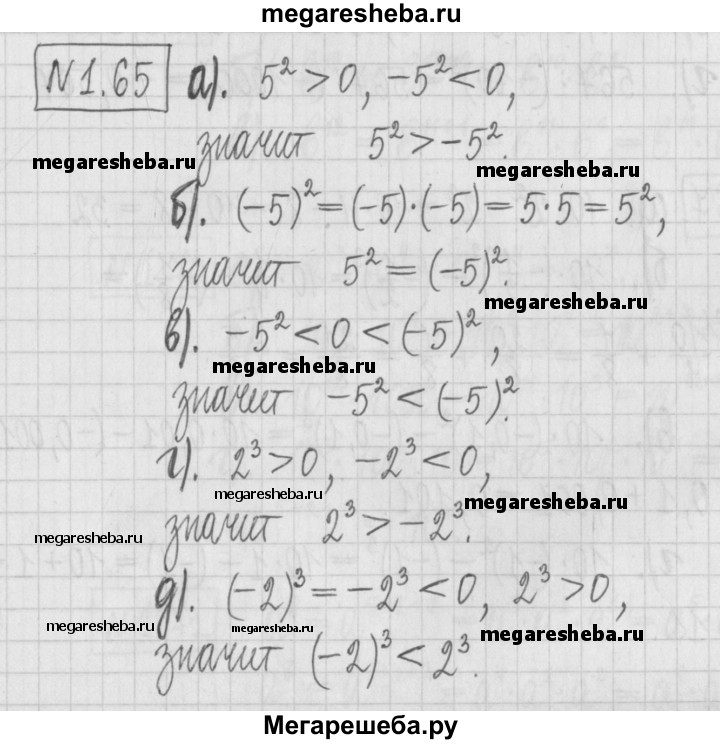 megaresheba.ru
№1.65 а). 5² > 0, -5² < 0,
значит 5² > -5².
megaresheba.ru megaresheba.ru
б). (-5)² = (-5)·(-5) = 5·5 = 5²,
значит 5² = (-5)².
megaresheba.ru
в). -5² < 0 < (-5)²,
megaresheba.ru
значит -5² < (-5)².
г). 2³ > 0, -2³ < 0,
megaresheba.ru megaresheba.ru
значит 2³ > -2³.
megaresheba.ru
д). (-2)³ = -2³ < 0, 2³ > 0,
megaresheba.ru megaresheba.ru megaresheba.ru
значит (-2)³ < 2³.
Мегарешеба.ру